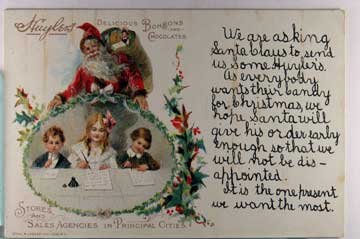 Huyler's
DELICIOUS BONBONS
AND
CHOCOLATES
STORES
AND
SALES AGENCIES IN PRINCIPAL CITIES
We are asking
Santa Claus to send
us some Huyler's.
As everybody
wants their candy
for Christmas, we
hope Santa will
give his order early
enough so that we
will not be dis-
appointed.
It is the one present
we want the most.